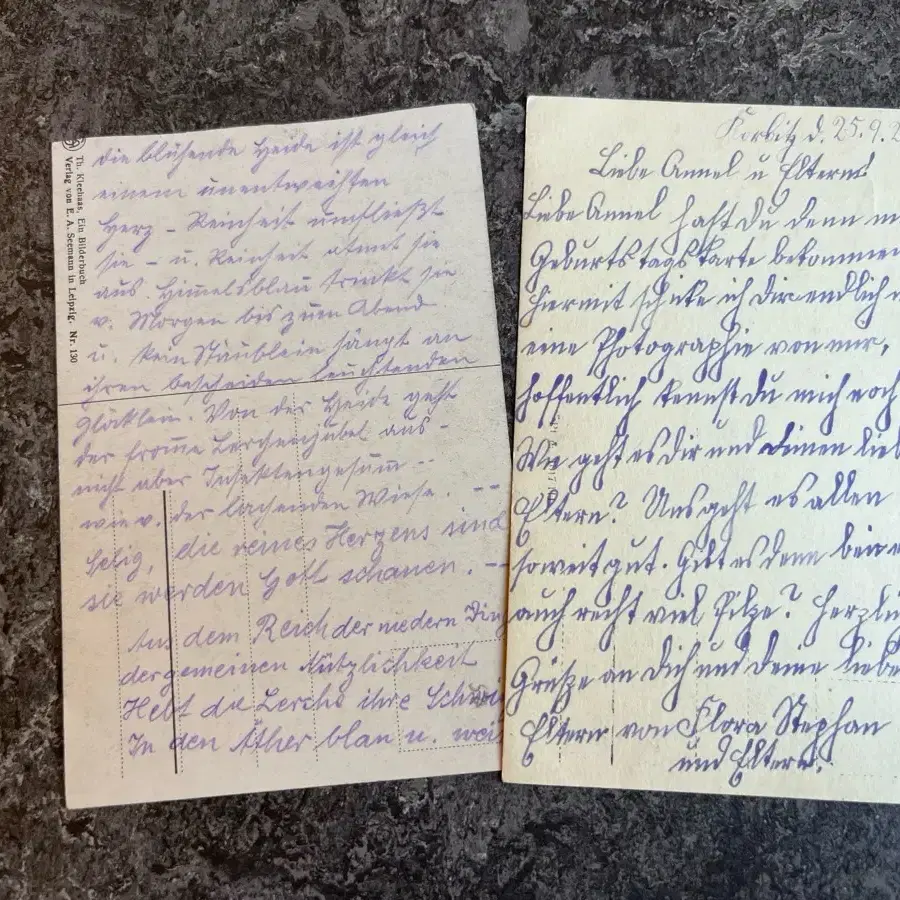 Th. Kleehaas, Ein Bilderbuch
Verlag von E. A. Seemann in Leipzig. Nr. 130
die blühende Heide ist gleich
einem unentweihten
Herz - Reinheit umfließt
sie - u. Reinheit atmet sie
aus. Him̅elsblau trinkt sie
v. Morgen bis zum Abend
u. kein Stäublein hängt an
ihren bescheiden leuchtenden
Glöcklein. Von der Heide geht
der from̅e Lerchenjubel aus -
nicht aber Insektengesum̅ --
wie v. der lachenden Wiese. --
Selig, die reines Herzens sind
sie werden Gott schauen. --
Aus dem Reich der niedern Din
der gemeinen Nützlichkeit
Hebt die Lerche ihre Schwi
In den Äther blau u. wei
Korbitz d. 25.9.2
Liebe Annel u Eltern!
Liebe Annel hast Du denn m
Geburtstagskarte bekommen
Hiermit schike ich Dir endlich
eine Photographie von mir,
hoffentlich kennst Du mich noch
Wie geht es Dir und Deinen lieb
Eltern? Uns geht es allen
soweit gut. Gibt es denn bei
auch recht viel Pilze? Herzli
Grüsze an Dich und deine liebe
Eltern von Flora Stephan
und Eltern.